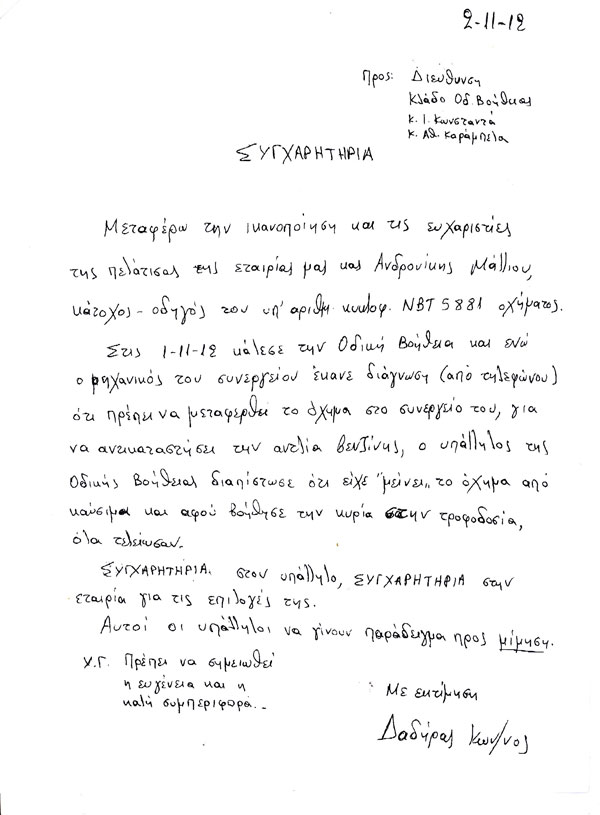 2-11-12
Προς: Διεύθυνση
Κλάδο Οδ. Βοήθειας
κ. Ι. Κωνσταντά
κ. Αθ. Καράμπελα
ΣΥΓΧΑΡΗΤΗΡΙΑ
Μεταφέρω την ικανοποίηση και τις ευχαριστίες
της πελάτισας της εταιρίας μας κας Ανδρονίκης Μάλλιου,
κάτοχος - οδηγός του υπ' αριθμ. κυκλοφ. NBT 5881 οχήματος.
Στις 1-11-12 κάλεσε την Οδική Βοήθεια και ενώ
ο μηχανικός του συνεργείου έκανε διάγνωση (από τηλεφώνου)
ότι πρέπει να μεταφερθεί το όχημα στο συνεργείο του, για
να αντικαταστήσει την αντλία βενζίνης, ο υπάλληλος της
Οδικής Βοήθειας διαπίστωσε ότι είχε "μείνει" το όχημα από
καύσιμα και αφού βοήθησε την κυρία στην τροφοδοσία,
όλα τελείωσαν.
ΣΥΓΧΑΡΗΤΗΡΙΑ στον υπάλληλο, ΣΥΓΧΑΡΗΤΗΡΙΑ στην
εταιρία για τις επιλογές της.
Αυτοί οι υπάλληλοι να γίνουν παράδειγμα προς μίμηση.
Υ.Γ. Πρέπει να σημειωθεί
η ευγένεια και η
καλή συμπεριφορά..
Με εκτίμηση
Δαδήρας Κων/νος